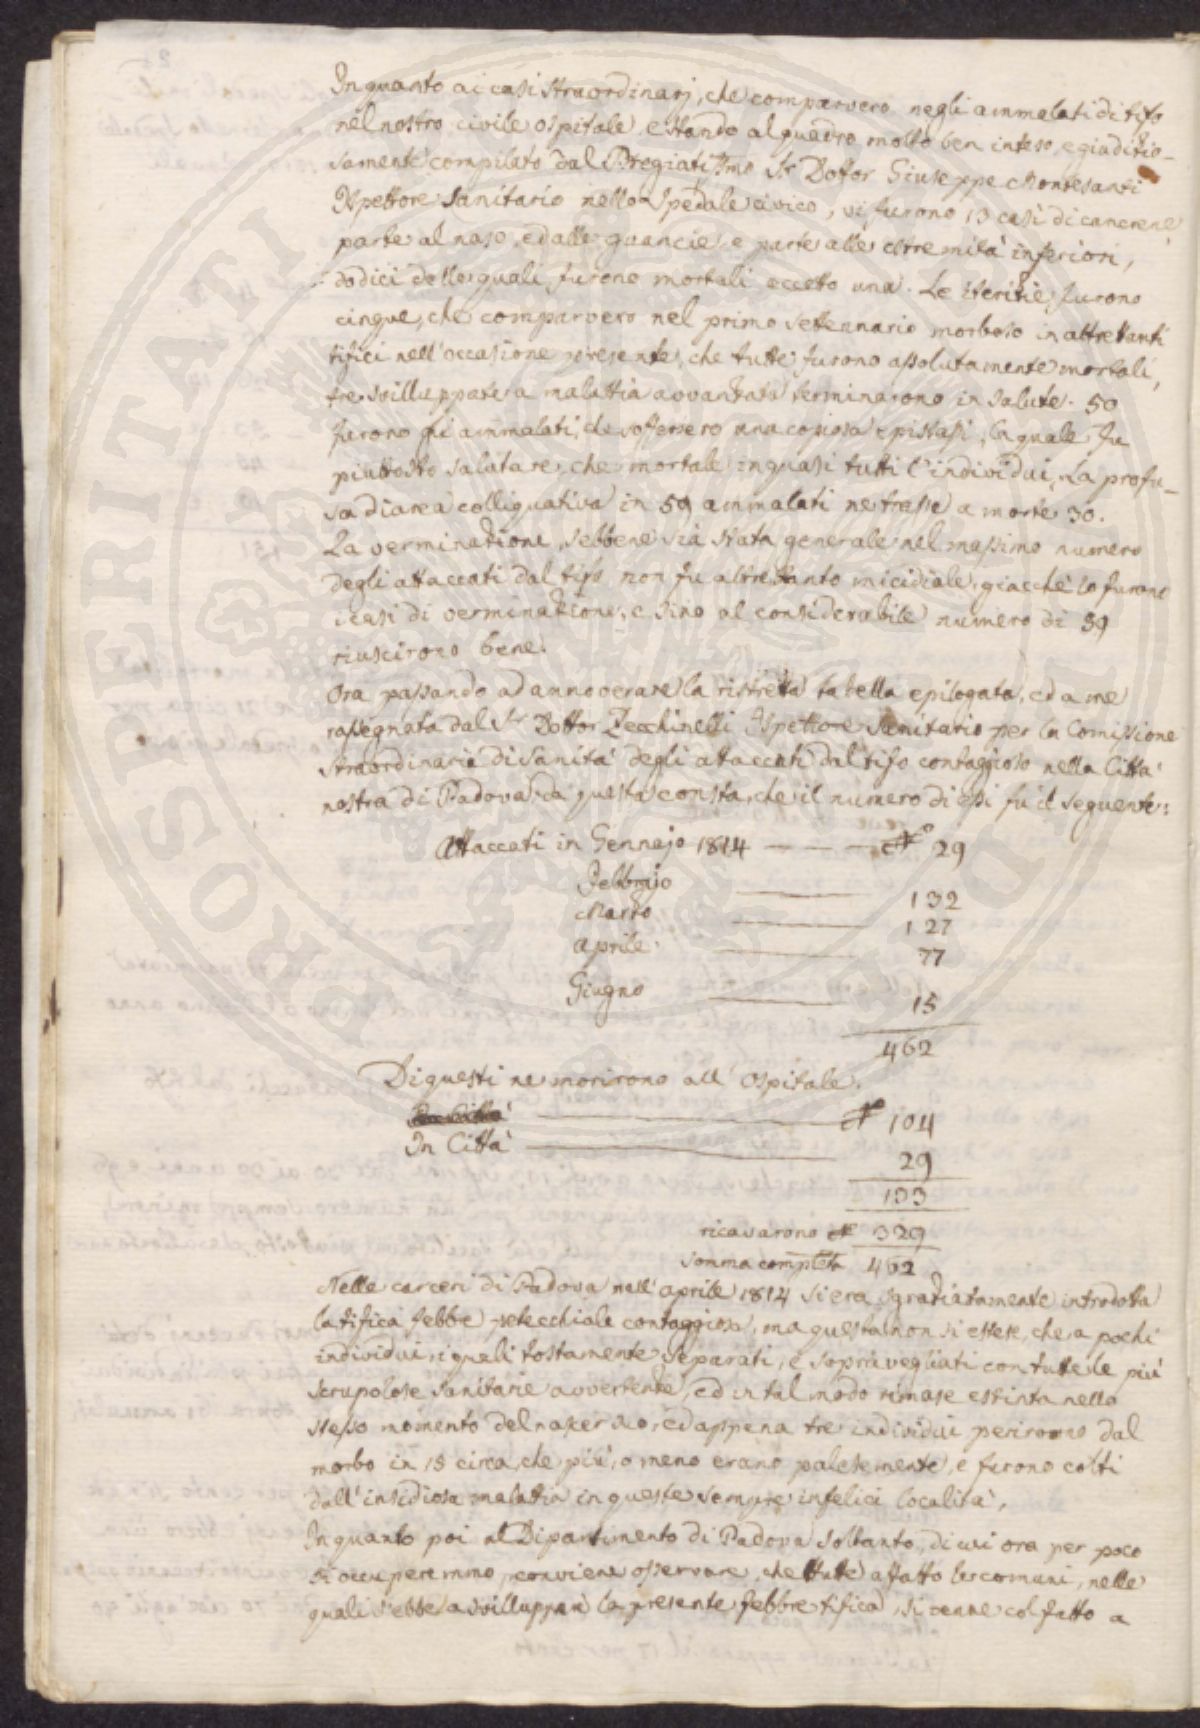 In quanto ai casi straordinarj, che comparvero negli ammalati di tifo
nel nostro civile ospitale, e stando al quadro molto ben inteso, e giudizio-
samente compilato dal Pregiatissmo Sr Dottor Giuseppe Montesanti
Ispettore Sanitario nello Spedale civico, vi furono 13 casi di cancrene,
parte al naso, ed alle guancie, e parte alle estremità inferiori,
dodici delle quali furono mortali eccetto una. Le Iterizie furono
cinque, che comparvero nel primo settennario morboso in altrettanti
tifici nell'occasione presente, che tutte furono assolutamente mortali,
tre sviluppate a malattia avvanzata terminarono in salute. 50
furono gli ammalati, che soffersero una copiosa epistasi, la quale fu
piuttosto salutare, che mortale in quasi tutti l'individui. La profu-
sa diarea colliquativa in 59 ammalati ne trasse a morte 30.
La verminazione, sebbene sia stata generale nel massimo numero
degli attaccati dal tifo non fu altrettanto micidiale, giacchè lo furono
i casi di verminazione, e sino al considerabile numero di 59
riuscirono bene.
Ora passando ad annoverare la ristretta tabella epilogata, ed a me
rassegnata dal Sr Dottor Zecchinelli Ispettore Sanitario per la Comissione
straordinaria di Sanità degli attaccati dal tifo contaggioso nella Città
nostra di Padova, da questa consta, che il numero di essi fu il seguente:
Attaccati in Gennajo 1814 — — — No 29
Febbrajo — 132
Marzo — 127
Aprile — 77
Giugno — 15
462
Di questi ne morirono all' Ospitale.
No 104
In Città — 29
133
ricavarono No 329
somma completa 462
Nelle carceri di Padova nell'aprile 1814 si era sgraziatamente introdotta
la tifica febbre petecchiale contaggiosa, ma questa non si estese, che a pochi
individui, i quali tostamente separati, e sopravegliati con tutte le più
scrupolose sanitarie avvertenze, ed in tal modo rimase estinta nello
stesso momento del nascer suo, ed appena tre individui perirono dal
morbo in 15 circa, che più, o meno erano palesemente, e furono colti
dall'insidiosa malattia in queste sempre infelici località.
In quanto poi al Dipartimento di Padova soltanto, di cui ora per poco
si occuperemmo, conviene osservare, che tutte affatto le comuni, nelle
quali s'ebbe a svilluppare la presente febbre tifica, si venne col fatto a